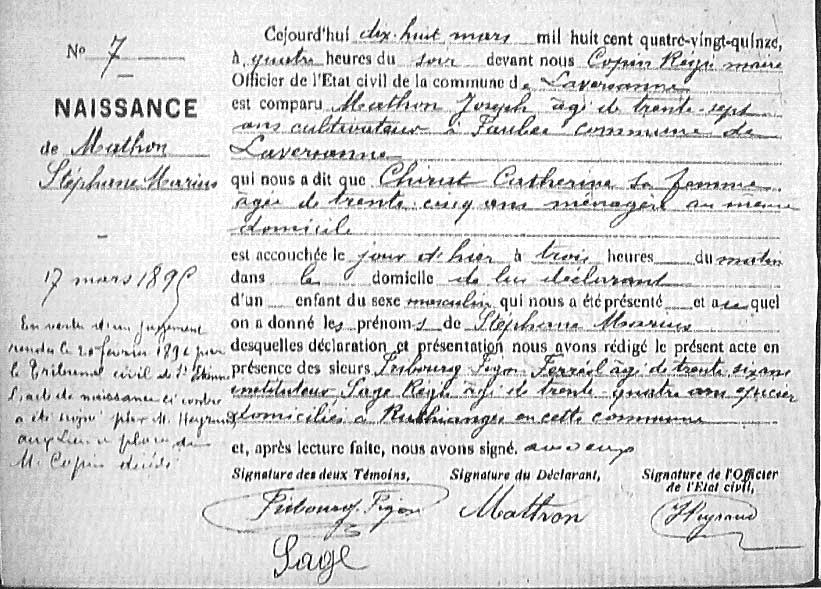 No 7
NAISSANCE
de Mathon
Stéphane Marius
17 mars 1895
En vertu d'un jugement
rendu le 20 février 1896 par
le Tribunal civil de St Etienne
l'acte de naissance ci contre
a été signé par M. Heyraud
aux lieu et place de
M. Copin décédé
Cejourd'hui dix-huit mars mil huit cent quatre-vingt-quinze,
à quatre heures du soir devant nous Copin Régis maire
Officier de l'Etat civil de la commune de Laversanne
est comparu Mathon Joseph âgé de trente-sept
ans cultivateur à commune de
Laversanne
qui nous a dit que Catherine sa femme
âgée de trente-cinq ans ménagère au même
domicile
est accouchée le jour d'hier à trois heures du matin
dans le domicile de lui déclarant
d'un enfant du sexe masculin qui nous a été présenté et auquel
on a donné les prénoms de Stéphane Marius
desquelles déclaration et présentation nous avons rédigé le présent acte en
présence des sieurs Fribourg Pigon Ferréol âgé de trente six ans
instituteur Sage Régis âgé de trente quatre ans épicier
domiciliés à Ruthiange en cette commune
et, après lecture faite, nous avons signé. avec eux
Signature des deux Témoins, Signature du Déclarant, Signature de l'Officier
de l'Etat civil,
Fribourg-Pigon Mathon Heyraud
Sage